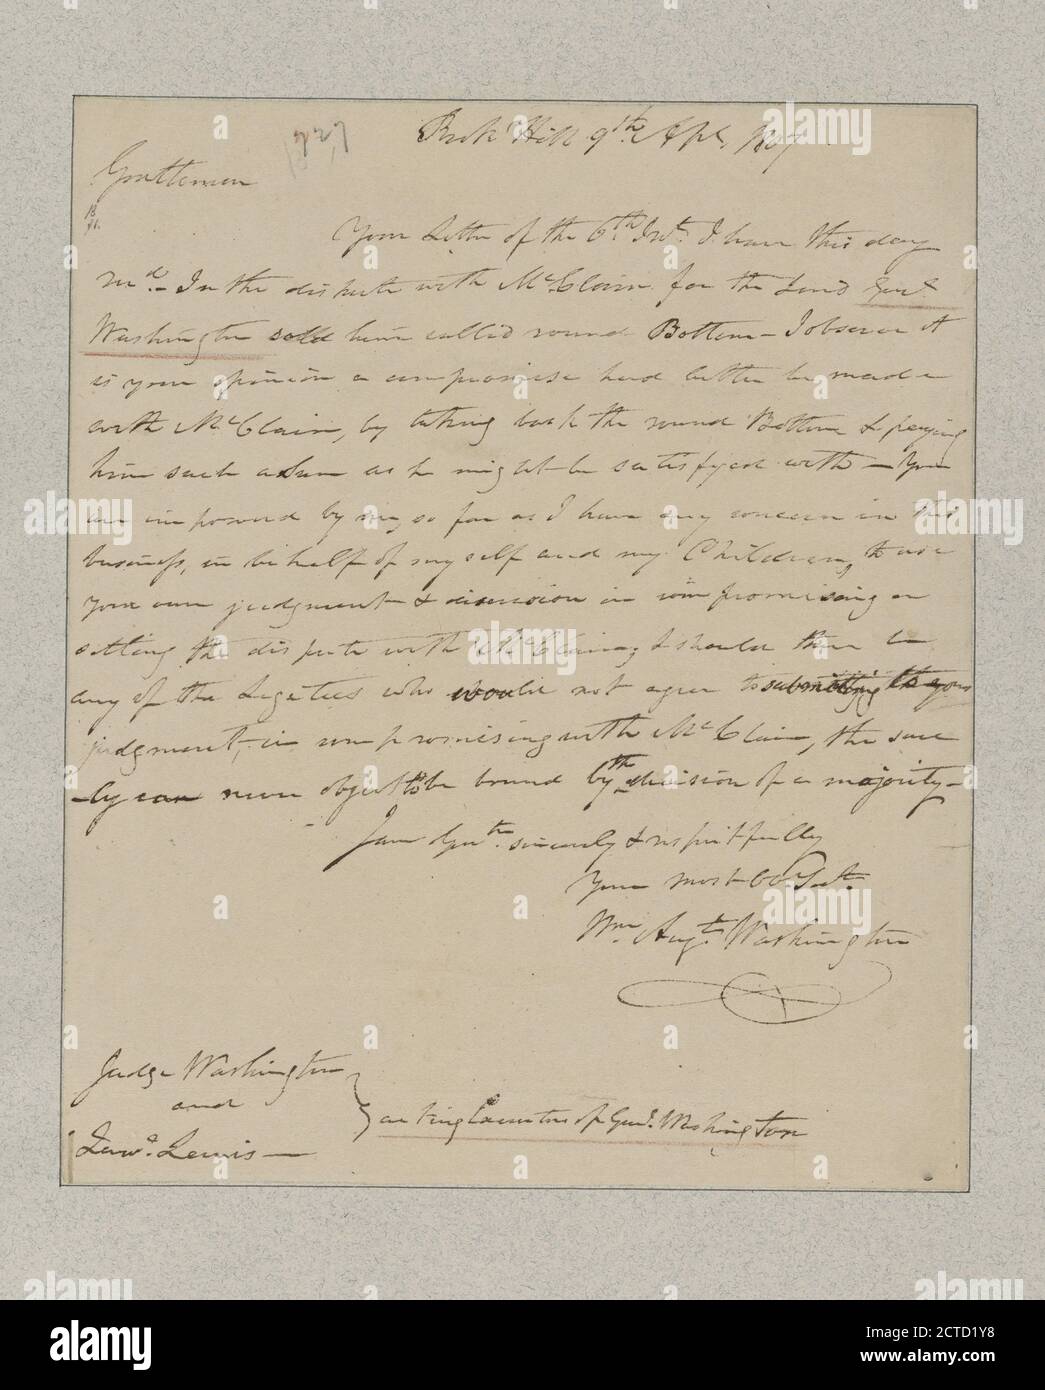 1827
Hill 9th Apl. 1807
Gentlemen
Your Letter of the 6th Inst. I have this day
recd. In the dispute with McClain for the Land Genl.
Washington sold him called round Bottom - I observe it
is your opinion a compromise had better be made
with McClain, by taking back the round Bottom & paying
him such a Sum as he might be satisfyed with - You
are impowered by me, so far as I have any concern in this
business, in behalf of my self and my Children, to use
your own judgment & discresion in compromising or
settling the dispute with McClain, & should there be
any of the Legatees who would not agree to submitting to your
judgment, in compromising with McClain, they sure
-ly can never object to be bound by the decision of a majority -
I am Gentn. sincerely & respectfully
Your most Ob. Sert.
Wm. Augt. Washington
Judge Washington
and
Law. Lewis -
acting Executors of Genl. Washington
a alamy
alamy
Image ID: 2CTD1Y8
www.alamy.com